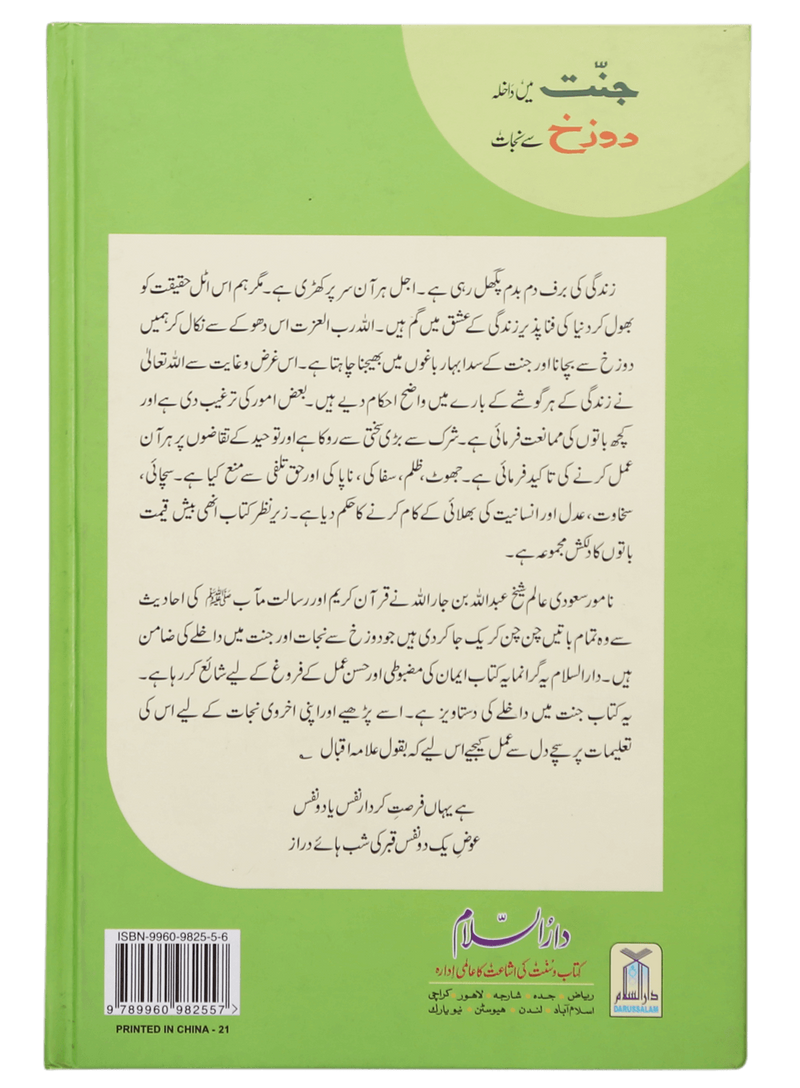 جنّت میں داخلہ
دوزخ سے نجات
زندگی کی برف دم بدم پگھل رہی ہے ۔ اجل ہر آن سر پر کھڑی ہے ۔ مگر ہم اس اٹل حقیقت کو
بھول کر دنیا کی فنا پذیر زندگی کے عشق میں گم ہیں ۔ اللہ رب العزت اس دھوکے سے نکال کر ہمیں
دوزخ سے بچانا اور جنت کے سدا بہار باغوں میں بھیجنا چاہتا ہے ۔ اس غرض و غایت سے اللہ تعالیٰ
نے زندگی کے ہر گوشے کے بارے میں واضح احکام دیے ہیں ۔ بعض امور کی ترغیب دی ہے اور
کچھ باتوں کی ممانعت فرمائی ہے ۔ شرک سے بڑی سختی سے روکا ہے اور توحید کے تقاضوں پر ہر آن
عمل کرنے کی تاکید فرمائی ہے ۔ جھوٹ، ظلم، سفاکی، ناپاکی اور حق تلفی سے منع کیا ہے ۔ سچائی،
سخاوت، عدل اور انسانیت کی بھلائی کے کام کرنے کا حکم دیا ہے ۔ زیر نظر کتاب انھی بیش قیمت
باتوں کا دلکش مجموعہ ہے ۔
نامور سعودی عالم شیخ عبداللہ بن جاراللہ نے قرآن کریم اور رسالت مآب ﷺ کی احادیث
سے وہ تمام باتیں چن چن کر یک جا کر دی ہیں جو دوزخ سے نجات اور جنت میں داخلے کی ضامن
ہیں ۔ دارالسلام یہ گرانمایہ کتاب ایمان کی مضبوطی اور حسن عمل کے فروغ کے لیے شائع کر رہا ہے ۔
یہ کتاب جنت میں داخلے کی دستاویز ہے ۔ اسے پڑھیے اور اپنی اخروی نجات کے لیے اس کی
تعلیمات پر سچے دل سے عمل کیجیے اس لیے کہ بقول علامہ اقبال ؎
ہے یہاں فرصتِ کردار نفس یا دو نفس
عوضِ یک دو نفس قبر کی شب ہائے دراز
ISBN-9960-9825-5-6
9 789960 982557 >
PRINTED IN CHINA - 21
دارُالسّلام
کتاب و سُنّت کی اشاعت کا عالمی اِدارہ
ریاض • جدہ • شارجہ • لاهور • کراچی
اسلام آباد • لندن • هیوسٹن • نیو یارک
دارالسلام
DARUSSALAM